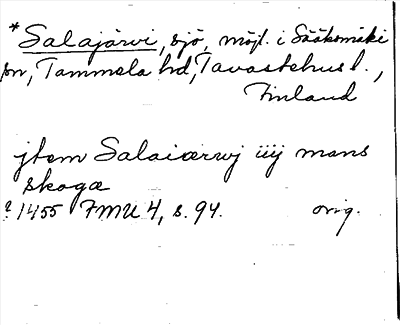 *Salajärvi, sjö, möjl. i Sääksmäki
sn, Tammela hd, Tavastehus l.,
Finland
jtem Salaiærwj iiij mans
skogæ
? 1455 FMU 4, s. 94. orig.